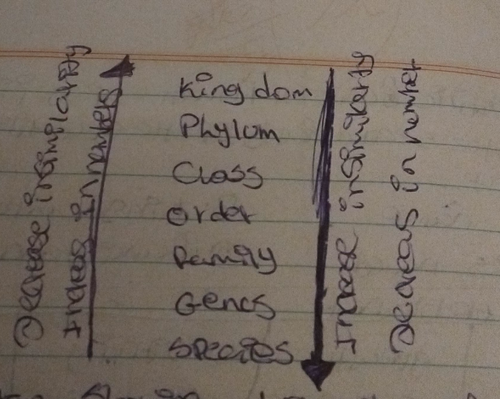 Decrease insimilarity
Increas in numbers
Kingdom
Phylum
Class
Order
Family
Genes
Species
Increase insimilarity
Decreas in number